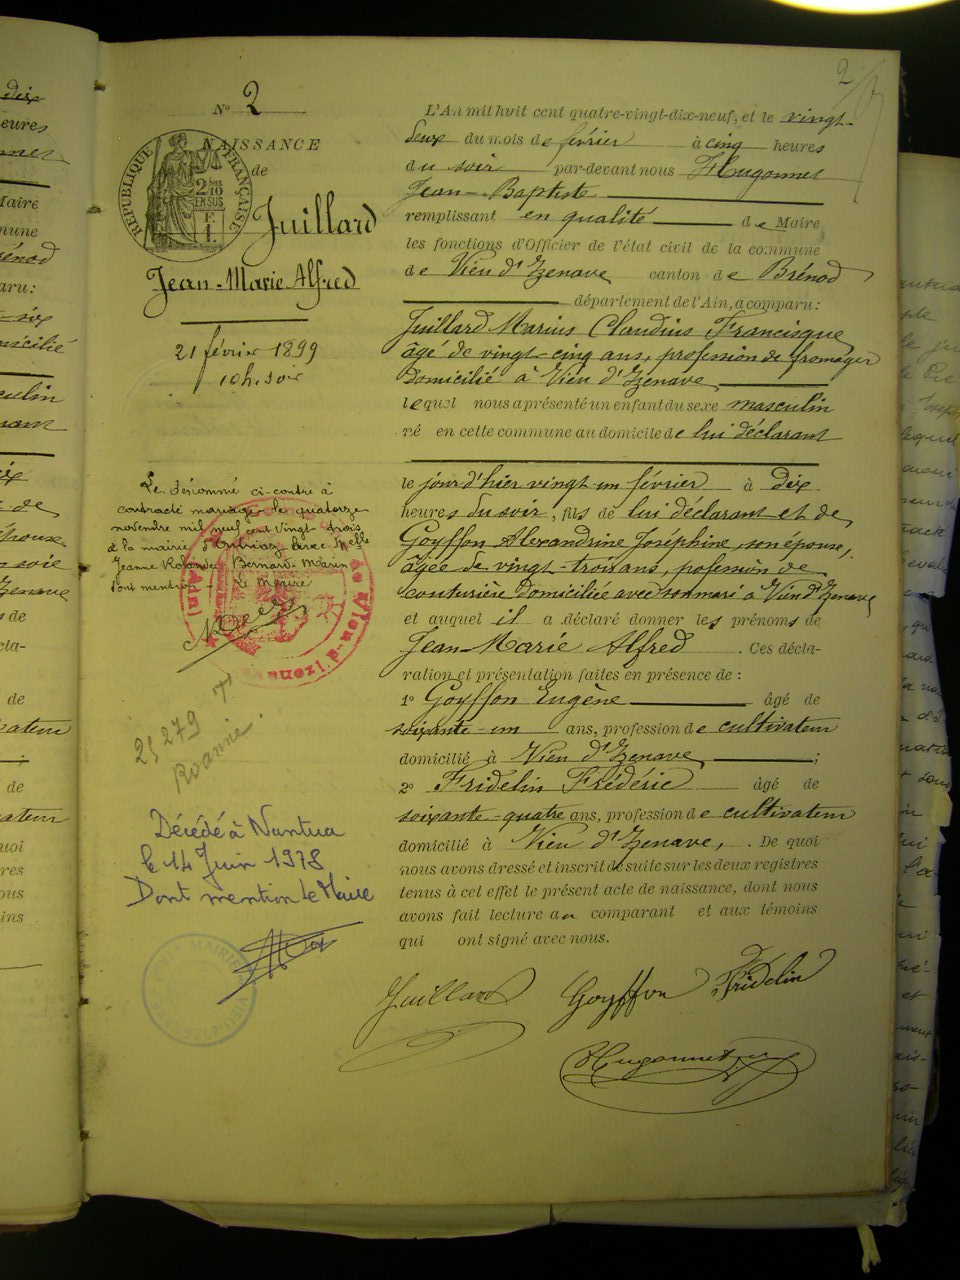 2
N° 2
NAISSANCE
de
RÉPUBLIQUE FRANÇAISE
2/10
EN SUS
Juillard
Jean-Marie Alfred
21 février 1899
10 h. soir
Le dénommé ci-contre à
contracté mariage le quatorze
novembre mil neuf cent vingt-trois
à la mairie d' avec Melle
Jeanne Bernard-Marin
dont mention Le Maire
25 279
Roanne
Décédé à Nantua
le 14 Juin 1978
Dont mention Le Maire
MAIRIE
L'An mil huit cent quatre-vingt-dix-neuf, et le vingt-
deux du mois de février à cinq heures
du soir par-devant nous Hugonnet
Jean-Baptiste
remplissant en qualité de Maire
les fonctions d'Officier de l'état civil de la commune
de Vieu d'Izenave canton de Brénod
département de l'Ain, a comparu :
Juillard Marius Claudius Francisque
âgé de vingt-cinq ans, profession de fromager
domicilié à Vieu d'Izenave
lequel nous a présenté un enfant du sexe masculin
né en cette commune au domicile de lui déclarant
le jour d'hier vingt-un février à dix
heures du soir, fils de lui déclarant et de
Goyffon Alexandrine Joséphine, son épouse,
âgée de vingt-trois ans, profession de
couturière domiciliée avec son mari à Vieu d'Izenave
et auquel il a déclaré donner les prénoms de
Jean-Marie Alfred. Ces décla-
ration et présentation faites en présence de :
1° Goyffon Eugène âgé de
soixante-un ans, profession de cultivateur
domicilié à Vieu d'Izenave ;
2° Fridelin Frédéric âgé de
soixante-quatre ans, profession de cultivateur
domicilié à Vieu d'Izenave, . De quoi
nous avons dressé et inscrit de suite sur les deux registres
tenus à cet effet le présent acte de naissance, dont nous
avons fait lecture au comparant et aux témoins
qui ont signé avec nous.
Juillard Goyffon Fridelin
Hugonnet